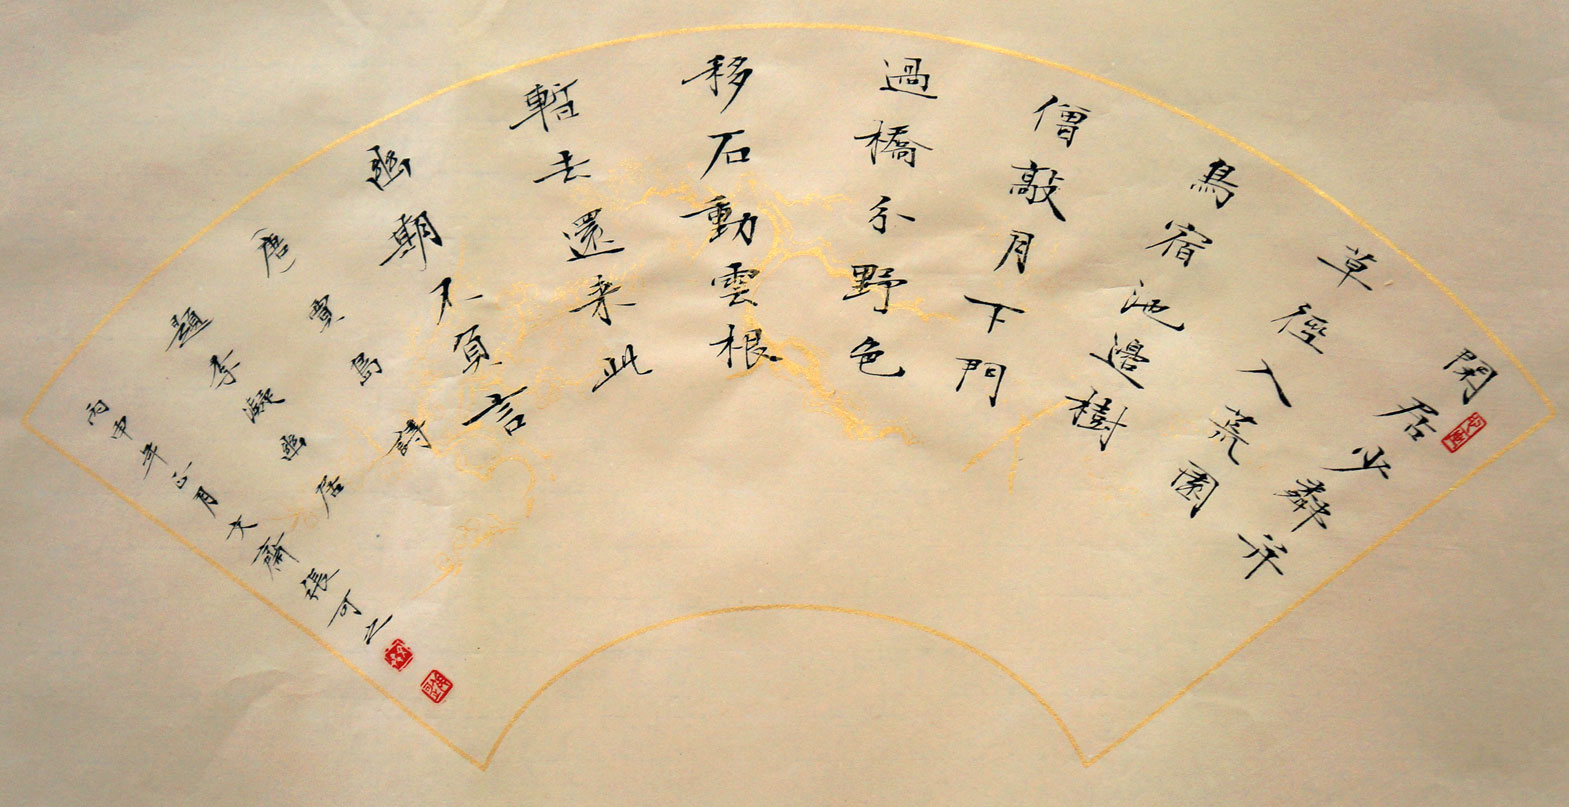 閑居少鄰并
草徑入荒園
鳥宿池邊樹
僧敲月下門
過橋分野色
移石動雲根
暫去還来此
幽期不負言
唐賈島詩
題李凝幽居
丙申年六月齋張可之